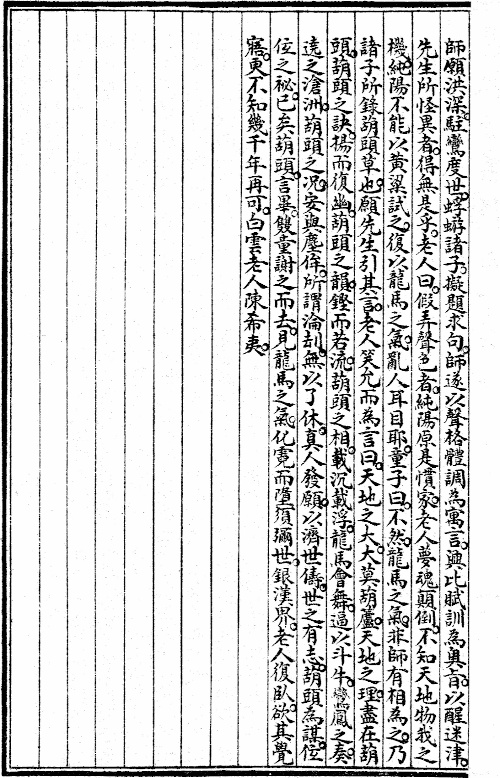 師願洪深。駐鸞度世。蜉蝣諸子。擬題求句。師遂以聲格體調為寓言。興比賦訓為奧旨。以醒迷津。
先生所怪異者。得無是乎。老人曰。假弄聲色者。純陽原是慣家。老人夢魂顛倒。不知天地物我之
機。純陽不能以黃粱試之。復以龍馬之氣。亂人耳目耶。童子曰。不然。龍馬之氣。非師有相為之。乃
諸子所錄葫頭草也。願先生引其言。老人笑允而為言曰。天地之大。大莫葫蘆。天地之理。盡在葫
頭。葫頭之訣。揚而復幽。葫頭之韻。鏗而若流。葫頭之相。載沉載浮。龍馬會舞。逼以斗牛。鸞鳳之奏。
遶之滄洲。葫頭之況。安與塵侔。所謂淪刦。無以了休。真人發願。以濟世儔。世之有志。葫頭為謀。位
位之秘已矣。葫頭言畢。雙童謝之而去。見龍馬之氣。化霓而墮須彌世。銀漢界。老人復臥。欲其覺
寤。更不知幾千年再可。白雲老人陳希夷。